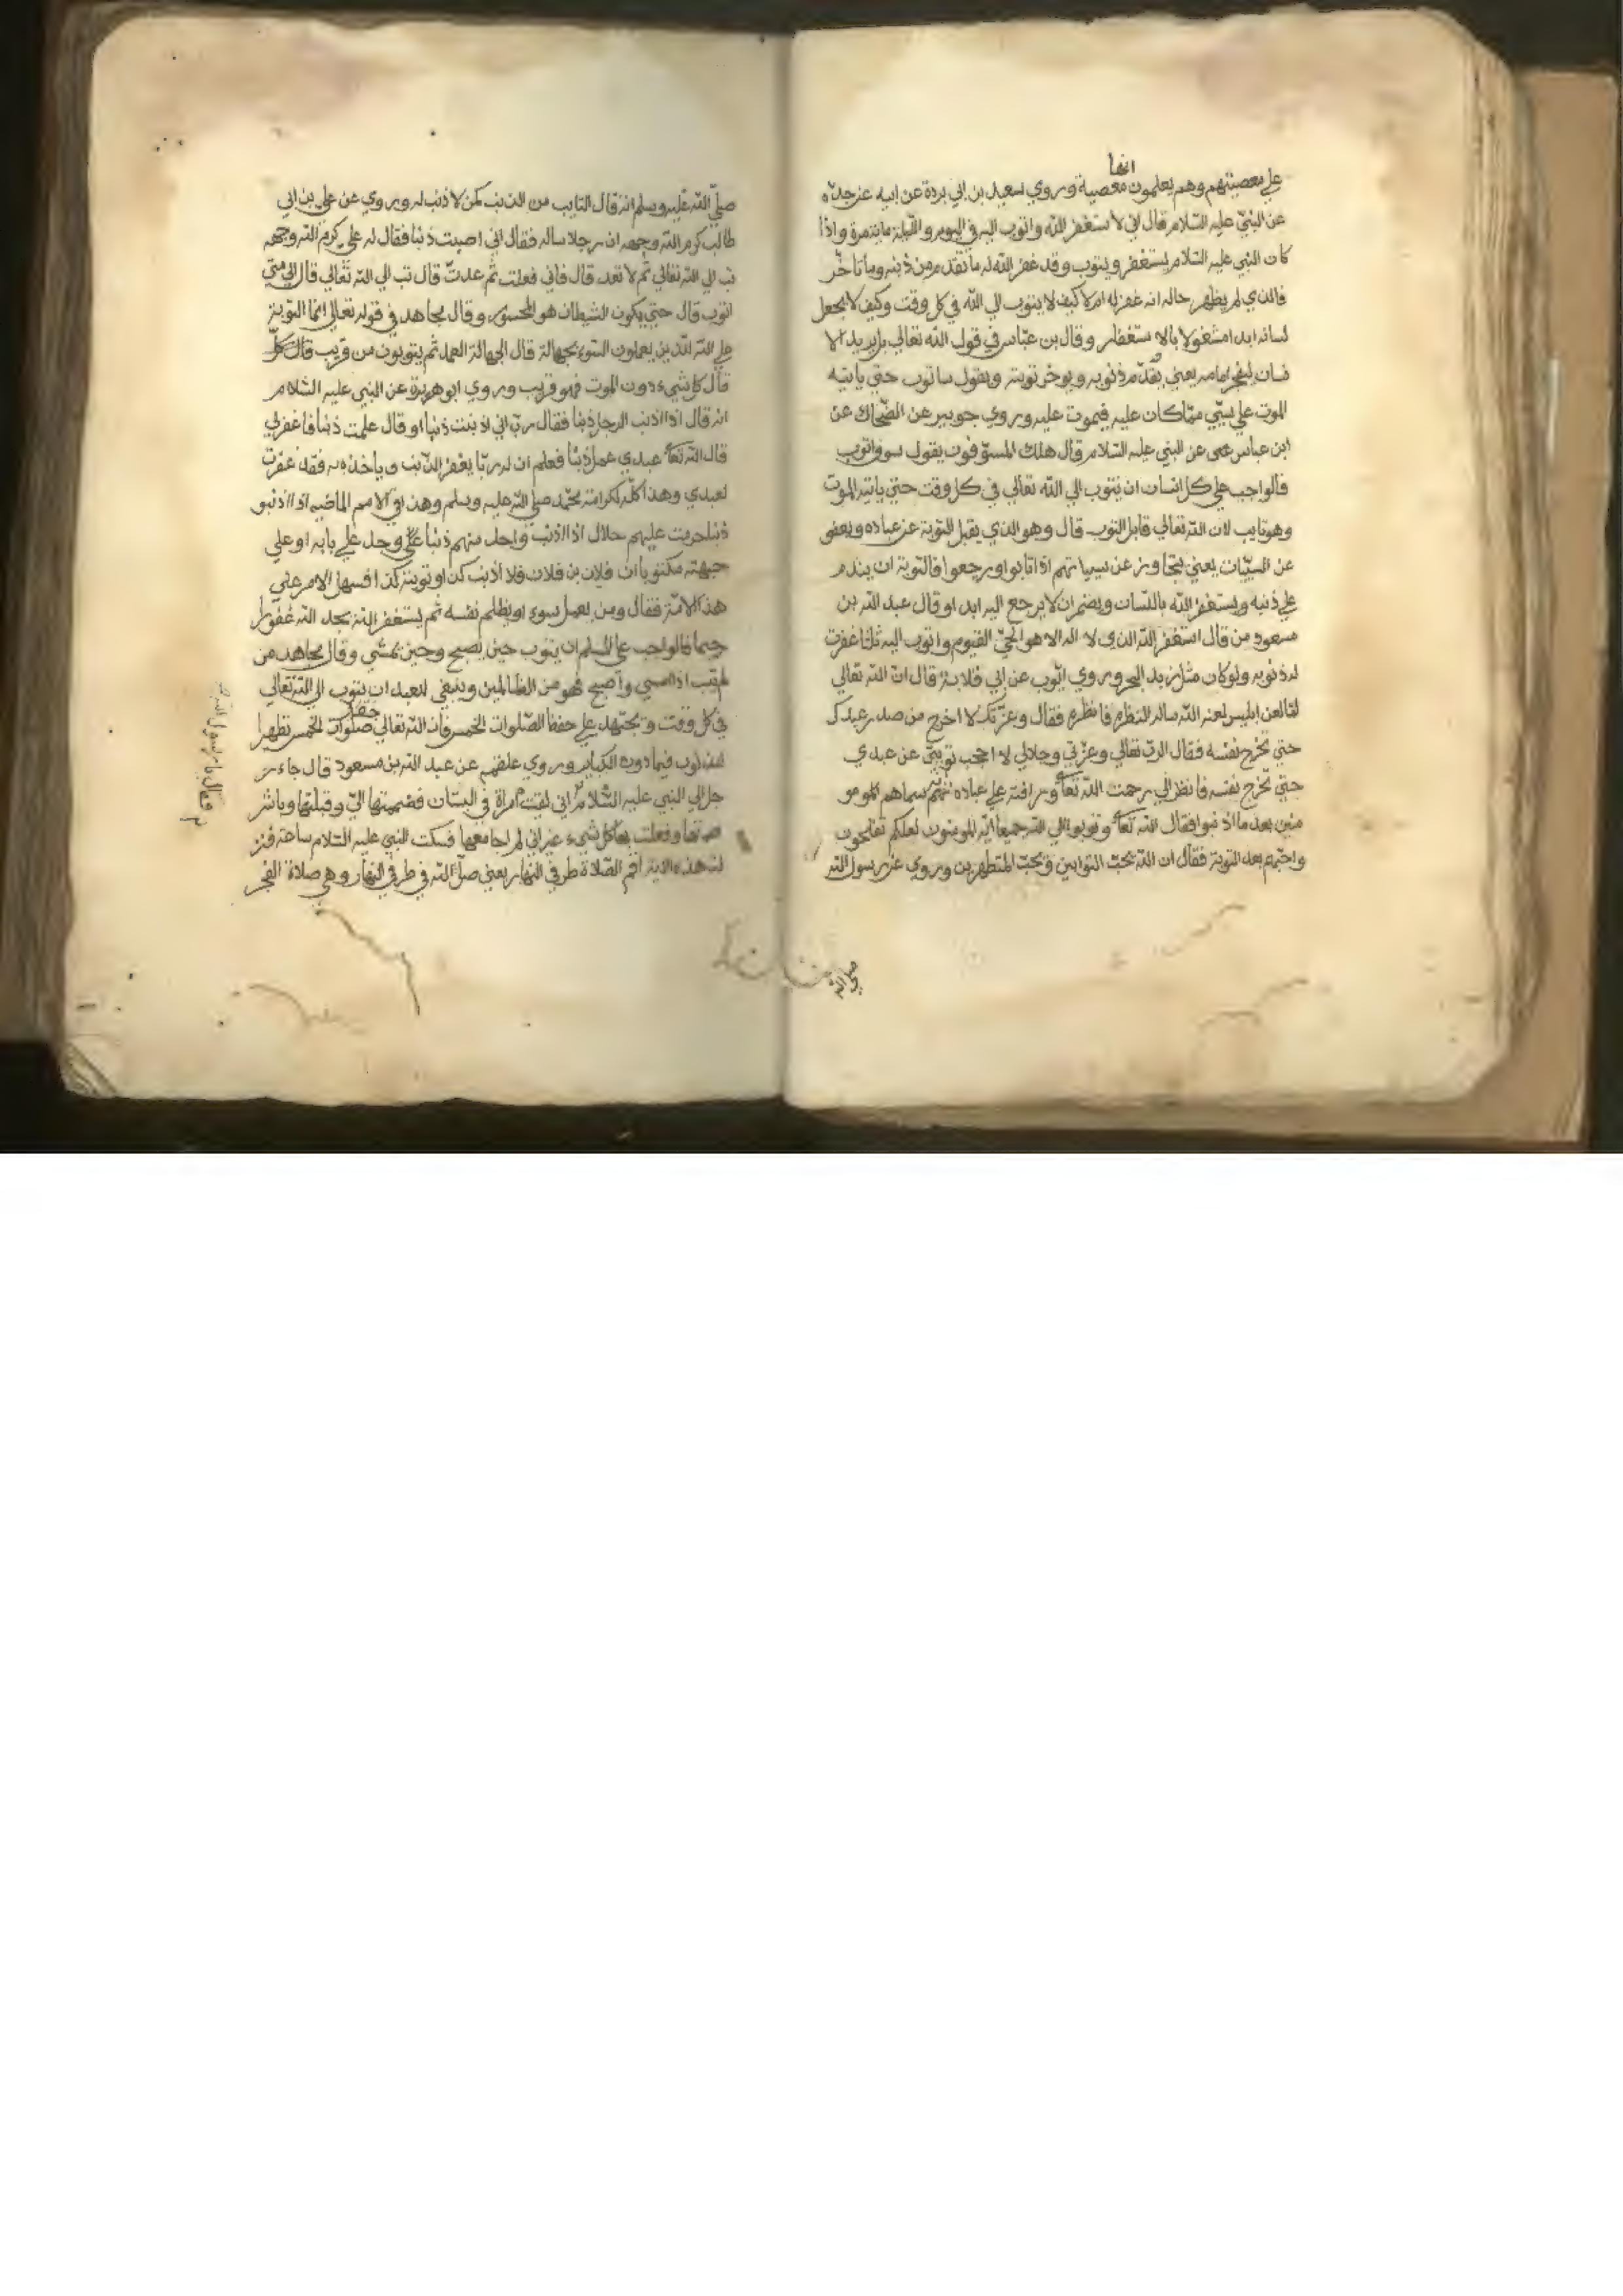 انها
علي معصيتهم وهم يعلمون معصية وروي سعيد بن ابي بردة عن ابيه عن جده
عن النبي عليه السلام قال اني لاستغفر الله واتوب اليه في اليوم والليلة ماية مرة واذا
كان النبي عليه السلام يستغفر ويتوب وقد غفر الله له ما تقدم من ذنبه وما تاخر
فالذي لم يظهر حاله انه غفر له ام لا كيف لا يتوب الي الله في كل وقت وكيف لا يجعل
لسانه ابدا مشغولا بالاستغفار وقال بن عباس في قول الله تعالي بل يريد الا
نسان ليفجر امامه يعني يقدم ذنوبه ويوخر توبته ويقول ساتوب حتي ياتيه
الموت علي ما كان عليه فيموت عليه وروي جويبر عن الضحاك عن
ابن عباس عن النبي عليه السلام قال هلك المسوفون يقول سوف اتوب
فالواجب علي كل انسان ان يتوب الي الله تعالي في كل وقت حتي ياتيه الموت
وهو تايب لان الله تعالي قابل التوب قال وهو الذي يقبل التوبة عن عباده ويعفو
عن السيئات يعني يتجاوز عن سيياتهم اذا تابوا ورجعوا فالتوبة ان يندم
علي ذنبه ويستغفر الله باللسان ويضمر ان لا يرجع اليه ابدا وقال عبد الله بن
مسعود من قال استغفر الله الذي لا اله الا هو الحي القيوم واتوب اليه ثلاثا غفرت
له ذنوبه ولو كان مثل زبد البحر وروي ايوب عن ابي قلابة قال ان الله تعالي
لما لعن ابليس لعنه الله ساله النظرة فانظره فقال وعزتك لا اخرج من صدر عبدك
حتي تخرج نفسه فقال الرب تعالي وعزتي وجلالي لا احجب توبتي عن عبدي
حتي تخرج نفسه فانظر الي رحمت الله تعا ورافته علي عباده سماهم المو
منين بعد ما اذنبوا فقال الله تعا وتوبوا الي الله جميعا ايه المومنون لعلكم تفلحون
بعد التوبة فقال ان الله يحب التوابين ويحب المتطهرين وروي عن رسول الله
صلي الله
صلي الله عليه وسلم انه قال التايب من الذنب كمن لا ذنب له وروي عن علي بن ابي
طالب كرم الله وجهه ان رجلا ساله فقال اني اصبت ذنبا فقال له علي كرم الله وجهه
تب الي الله تعالي ثم لا تعد قال فاني فعلت ثم عدت قال تب الي الله تعالي قال الي متي
اتوب قال حتي يكون الشيطان هو المحسور وقال مجاهد في قوله تعالي انما التوبة
علي الله للذين يعملون السوء بجهالة قال الجهالة العمد ثم يتوبون من قريب قال كل
قال كل شيء دون الموت فهو قريب وروي ابو هريرة عن النبي عليه السلام
انه قال اذا اذنب الرجل ذنبا فقال رب اني اذنبت ذنبا او قال علمت ذنبا فاغفر لي
قال الله تعا عبدي عمل ذنبا فعلم ان له ربا يغفر الذنب وياخذ به فقد غفرت
لعبدي وهذا كله لكرامة محمد صلي الله عليه وسلم وهذا في الامم الماضيه اذا اذنبو
ذنبا حرمت عليهم حلال اذا اذنب واحد منهم ذنبا وجد علي بابه او علي
جبهته مكتوبا ان فلان بن فلان قد اذنب كذا وتوبته كذا فسهل الامر علي
هذه الامة فقال ومن يعمل سوءا او يظلم نفسه ثم يستغفر الله يجد الله غفورا ر
حيما فالواجب علي المسلم ان يتوب حين يصبح وحين يمسي وقال مجاهد من
لم يتب اذا امسي واصبح فهو من الظالمين وينبغي للعبد ان يتوب الي الله تعالي
في كل وقت ويجتهد علي حفظ الصلوات الخمس فان الله تعالي جعل صلوات الخمس تطهيرا
للذنوب فيما دون الكباير وروي علقمة عن عبد الله بن مسعود قال جاء ر
جل الي النبي عليه السلام اني لقيت امراة في البستان فضممتها الي وقبلتها وباشر
تها وفعلت بها كل شيء غير اني لم اجامعها فسكت النبي عليه السلام ساعة فنز
لت هذه الاية اقم الصلاة طرفي النهار يعني صل لله في طرفي النهار وهي صلاة الفجر
فقال يا رسول الله